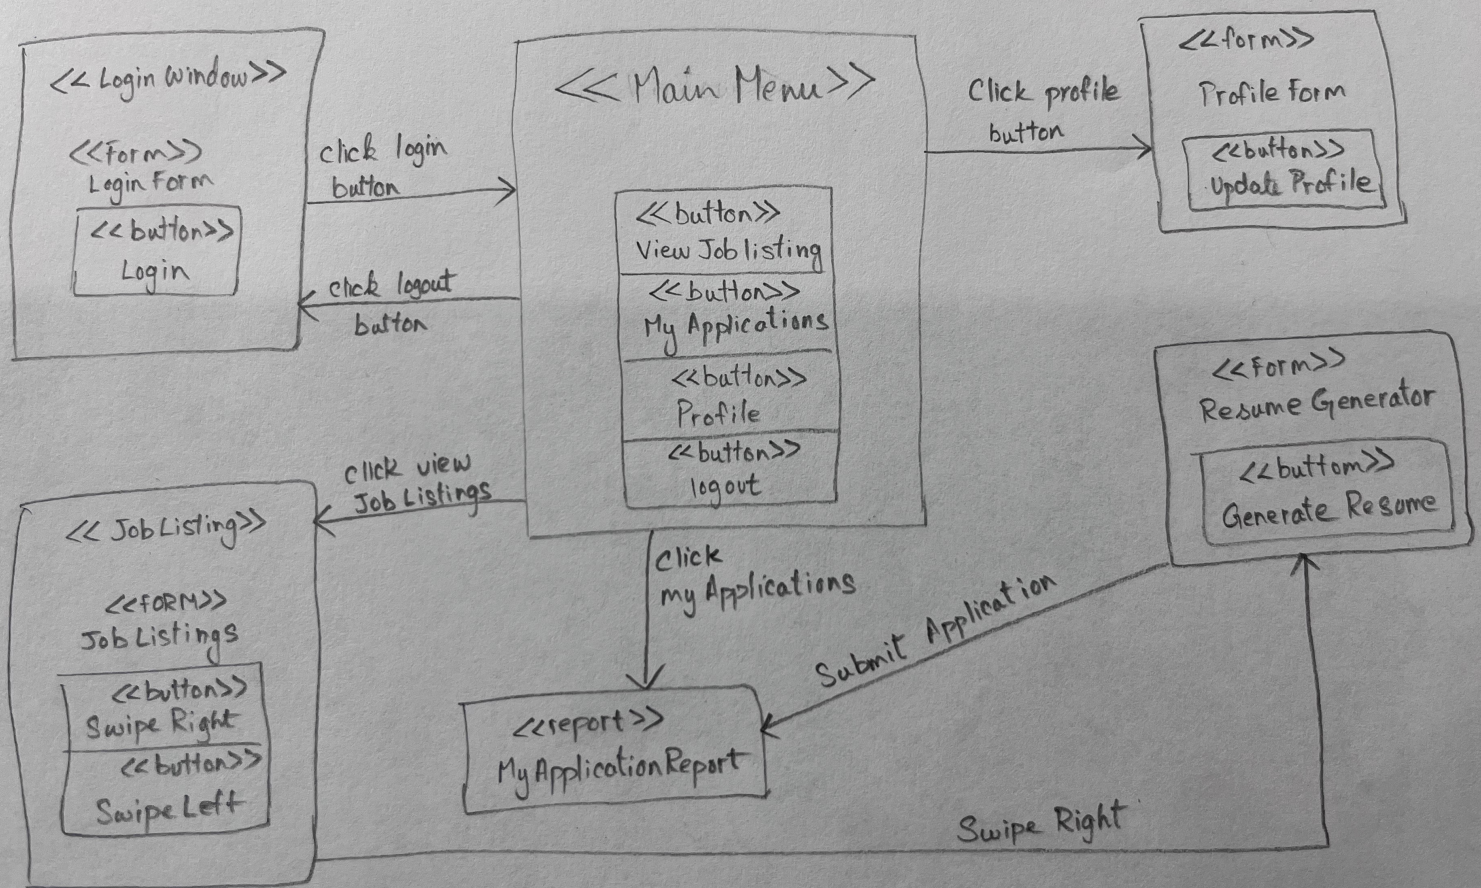 << Login Window>>
<<Form>>
Login Form
<<button>>
Login
click login
button
click logout
button
<<Main Menu>>
<<button>>
View Joblisting
<<button>>
My Applications
<<button>>
Profile
<<button>>
logout
Click profile
button
<<form>>
Profile Form
<<button>>
Update Profile
<<Form>>
Resume Generator
<<buttom>>
Generate Resume
click view
Job Listings
<< Job Listing>>
<<FORM>>
Job Listings
<<button>>
Swipe Right
<<button>>
Swipe Left
Click
my Applications
Submit Application
<<report>>
My Application Report
Swipe Right